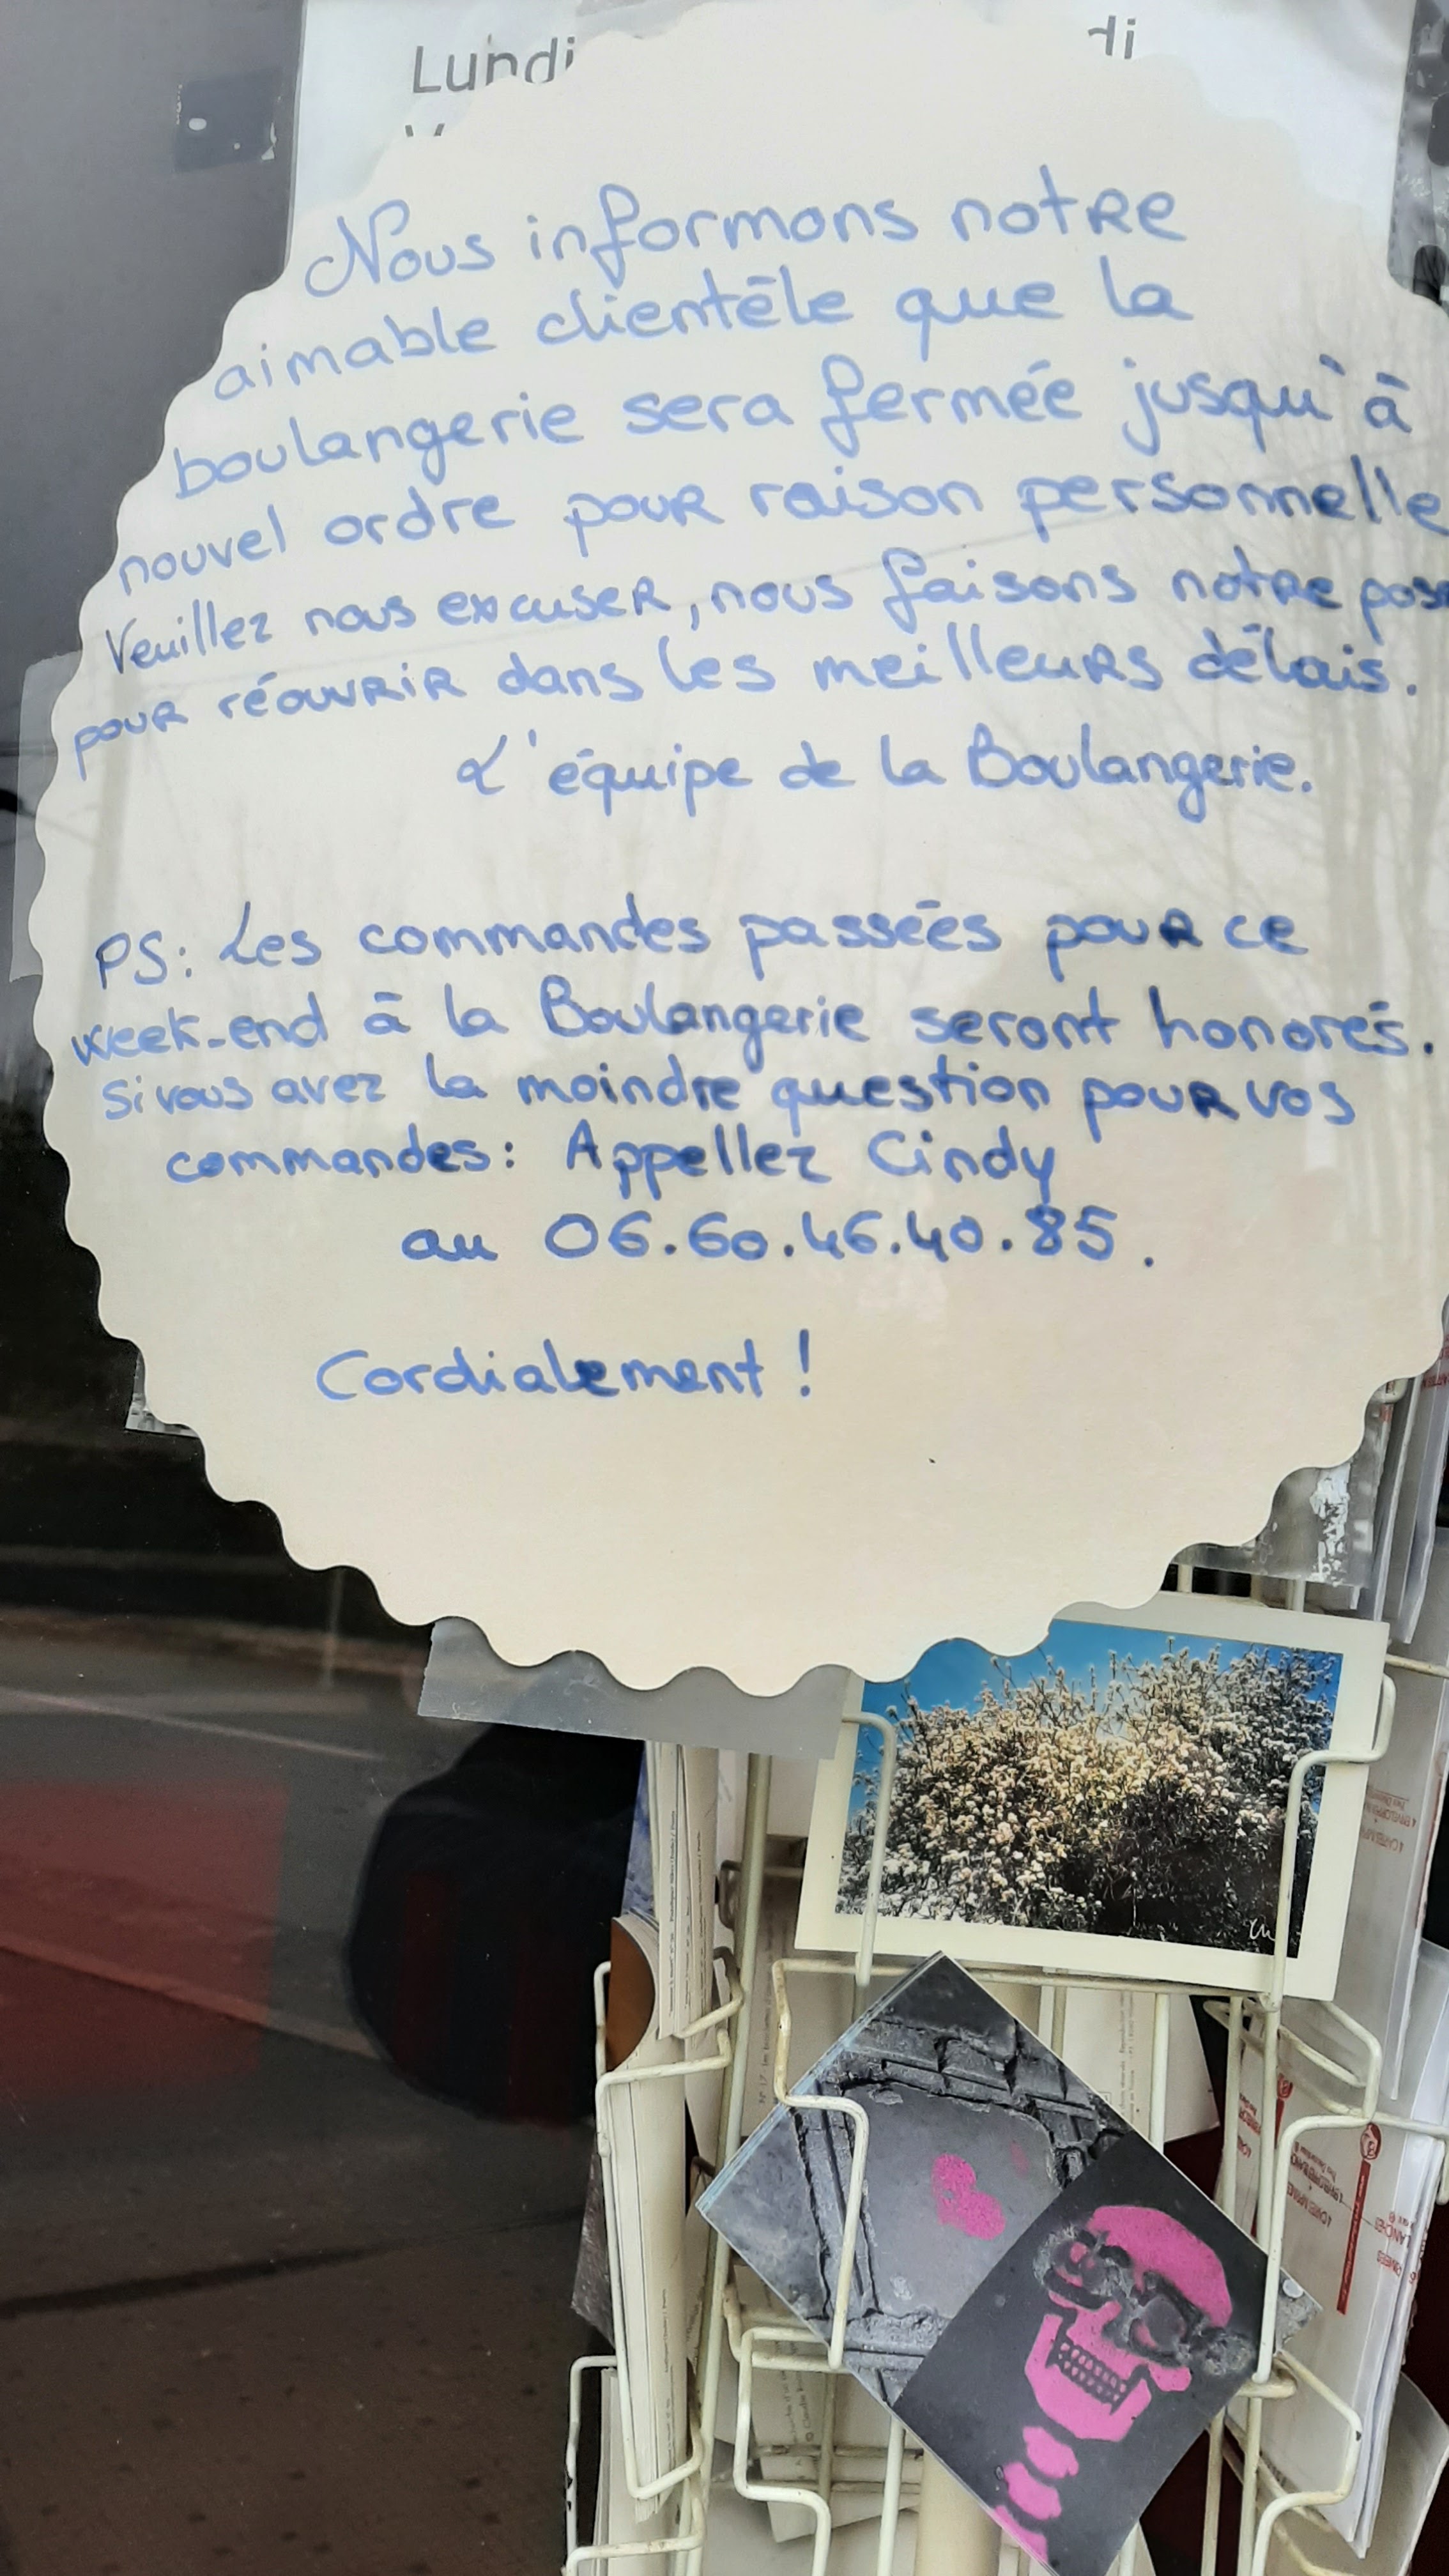 Lundi
Nous informons notre
aimable clientèle que la
boulangerie sera fermée jusqu'à
nouvel ordre pour raison personnelle
Veuillez nous excuser, nous faisons notre
pour réouvrir dans les meilleurs délais.
L'équipe de la Boulangerie.
PS: Les commandes passées pour ce
week-end à la Boulangerie seront honorés.
Si vous avez la moindre question pour vos
commandes: Appellez Cindy
au 06.60.46.40.85.
Cordialement !